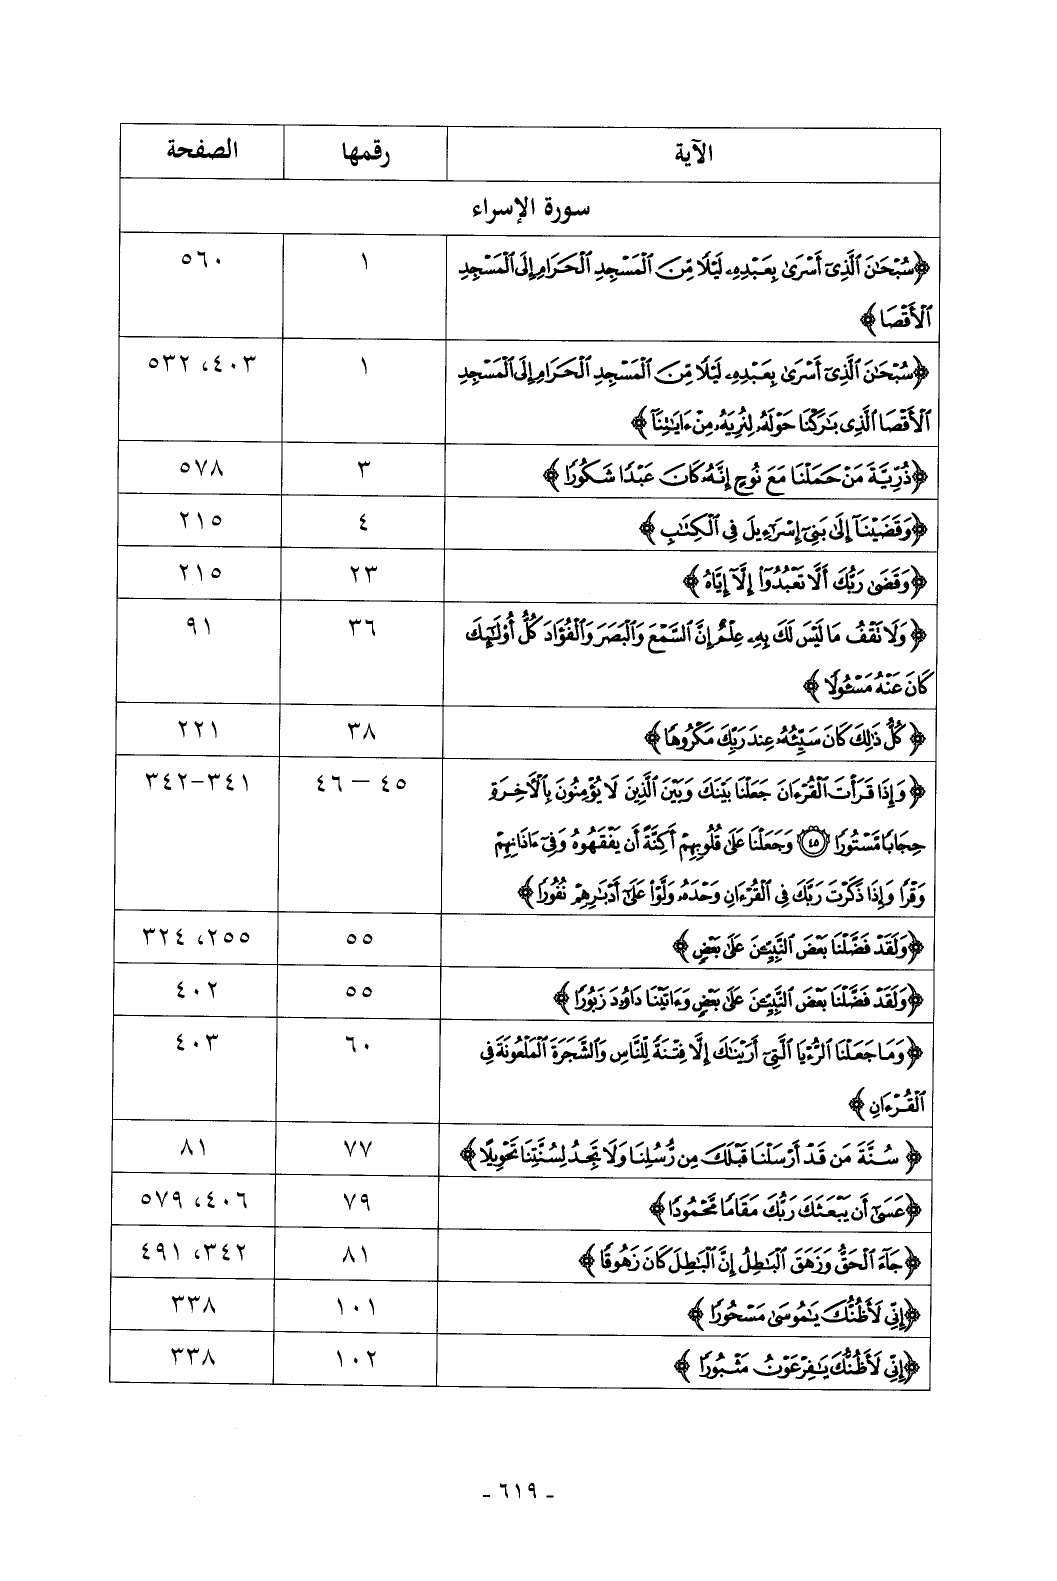 الآية رقمها الصفحة
سورة الإسراء
﴿سُبْحَٰنَ ٱلَّذِىٓ أَسْرَىٰ بِعَبْدِهِۦ لَيْلًا مِّنَ ٱلْمَسْجِدِ ٱلْحَرَامِ إِلَى ٱلْمَسْجِدِ ١ ٥٦٠
ٱلْأَقْصَا﴾
﴿سُبْحَٰنَ ٱلَّذِىٓ أَسْرَىٰ بِعَبْدِهِۦ لَيْلًا مِّنَ ٱلْمَسْجِدِ ٱلْحَرَامِ إِلَى ٱلْمَسْجِدِ ١ ٤٠٣، ٥٣٢
ٱلْأَقْصَا ٱلَّذِى بَٰرَكْنَا حَوْلَهُۥ لِنُرِيَهُۥ مِنْ ءَايَٰتِنَآ﴾
﴿ذُرِّيَّةَ مَنْ حَمَلْنَا مَعَ نُوحٍ إِنَّهُۥ كَانَ عَبْدًا شَكُورًا﴾ ٣ ٥٧٨
﴿وَقَضَيْنَآ إِلَىٰ بَنِىٓ إِسْرَٰٓءِيلَ فِى ٱلْكِتَٰبِ﴾ ٤ ٢١٥
﴿وَقَضَىٰ رَبُّكَ أَلَّا تَعْبُدُوٓا۟ إِلَّآ إِيَّاهُ﴾ ٢٣ ٢١٥
﴿وَلَا تَقْفُ مَا لَيْسَ لَكَ بِهِۦ عِلْمٌ إِنَّ ٱلسَّمْعَ وَٱلْبَصَرَ وَٱلْفُؤَادَ كُلُّ أُو۟لَٰٓئِكَ ٣٦ ٩١
كَانَ عَنْهُ مَسْـُٔولًا﴾
﴿كُلُّ ذَٰلِكَ كَانَ سَيِّئُهُۥ عِندَ رَبِّكَ مَكْرُوهًا﴾ ٣٨ ٢٢١
﴿وَإِذَا قَرَأْتَ ٱلْقُرْءَانَ جَعَلْنَا بَيْنَكَ وَبَيْنَ ٱلَّذِينَ لَا يُؤْمِنُونَ بِٱلْءَاخِرَةِ ٤٥ – ٤٦ ٣٤١–٣٤٢
حِجَابًا مَّسْتُورًا ٤٥ وَجَعَلْنَا عَلَىٰ قُلُوبِهِمْ أَكِنَّةً أَن يَفْقَهُوهُ وَفِىٓ ءَاذَانِهِمْ
وَقْرًا وَإِذَا ذَكَرْتَ رَبَّكَ فِى ٱلْقُرْءَانِ وَحْدَهُۥ وَلَّوْا۟ عَلَىٰٓ أَدْبَٰرِهِمْ نُفُورًا﴾
﴿وَلَقَدْ فَضَّلْنَا بَعْضَ ٱلنَّبِيِّـۧنَ عَلَىٰ بَعْضٍ﴾ ٥٥ ٢٥٥، ٣٢٤
﴿وَلَقَدْ فَضَّلْنَا بَعْضَ ٱلنَّبِيِّـۧنَ عَلَىٰ بَعْضٍ وَءَاتَيْنَا دَاوُۥدَ زَبُورًا﴾ ٥٥ ٤٠٢
﴿وَمَا جَعَلْنَا ٱلرُّءْيَا ٱلَّتِىٓ أَرَيْنَٰكَ إِلَّا فِتْنَةً لِّلنَّاسِ وَٱلشَّجَرَةَ ٱلْمَلْعُونَةَ فِى ٦٠ ٤٠٣
ٱلْقُرْءَانِ﴾
﴿سُنَّةَ مَن قَدْ أَرْسَلْنَا قَبْلَكَ مِن رُّسُلِنَا وَلَا تَجِدُ لِسُنَّتِنَا تَحْوِيلًا﴾ ٧٧ ٨١
﴿عَسَىٰٓ أَن يَبْعَثَكَ رَبُّكَ مَقَامًا مَّحْمُودًا﴾ ٧٩ ٤٠٦، ٥٧٩
﴿جَآءَ ٱلْحَقُّ وَزَهَقَ ٱلْبَٰطِلُ إِنَّ ٱلْبَٰطِلَ كَانَ زَهُوقًا﴾ ٨١ ٣٤٢، ٤٩١
﴿إِنِّى لَأَظُنُّكَ يَٰمُوسَىٰ مَسْحُورًا﴾ ١٠١ ٣٣٨
﴿إِنِّى لَأَظُنُّكَ يَٰفِرْعَوْنُ مَثْبُورًا﴾ ١٠٢ ٣٣٨
- ٦١٩ -